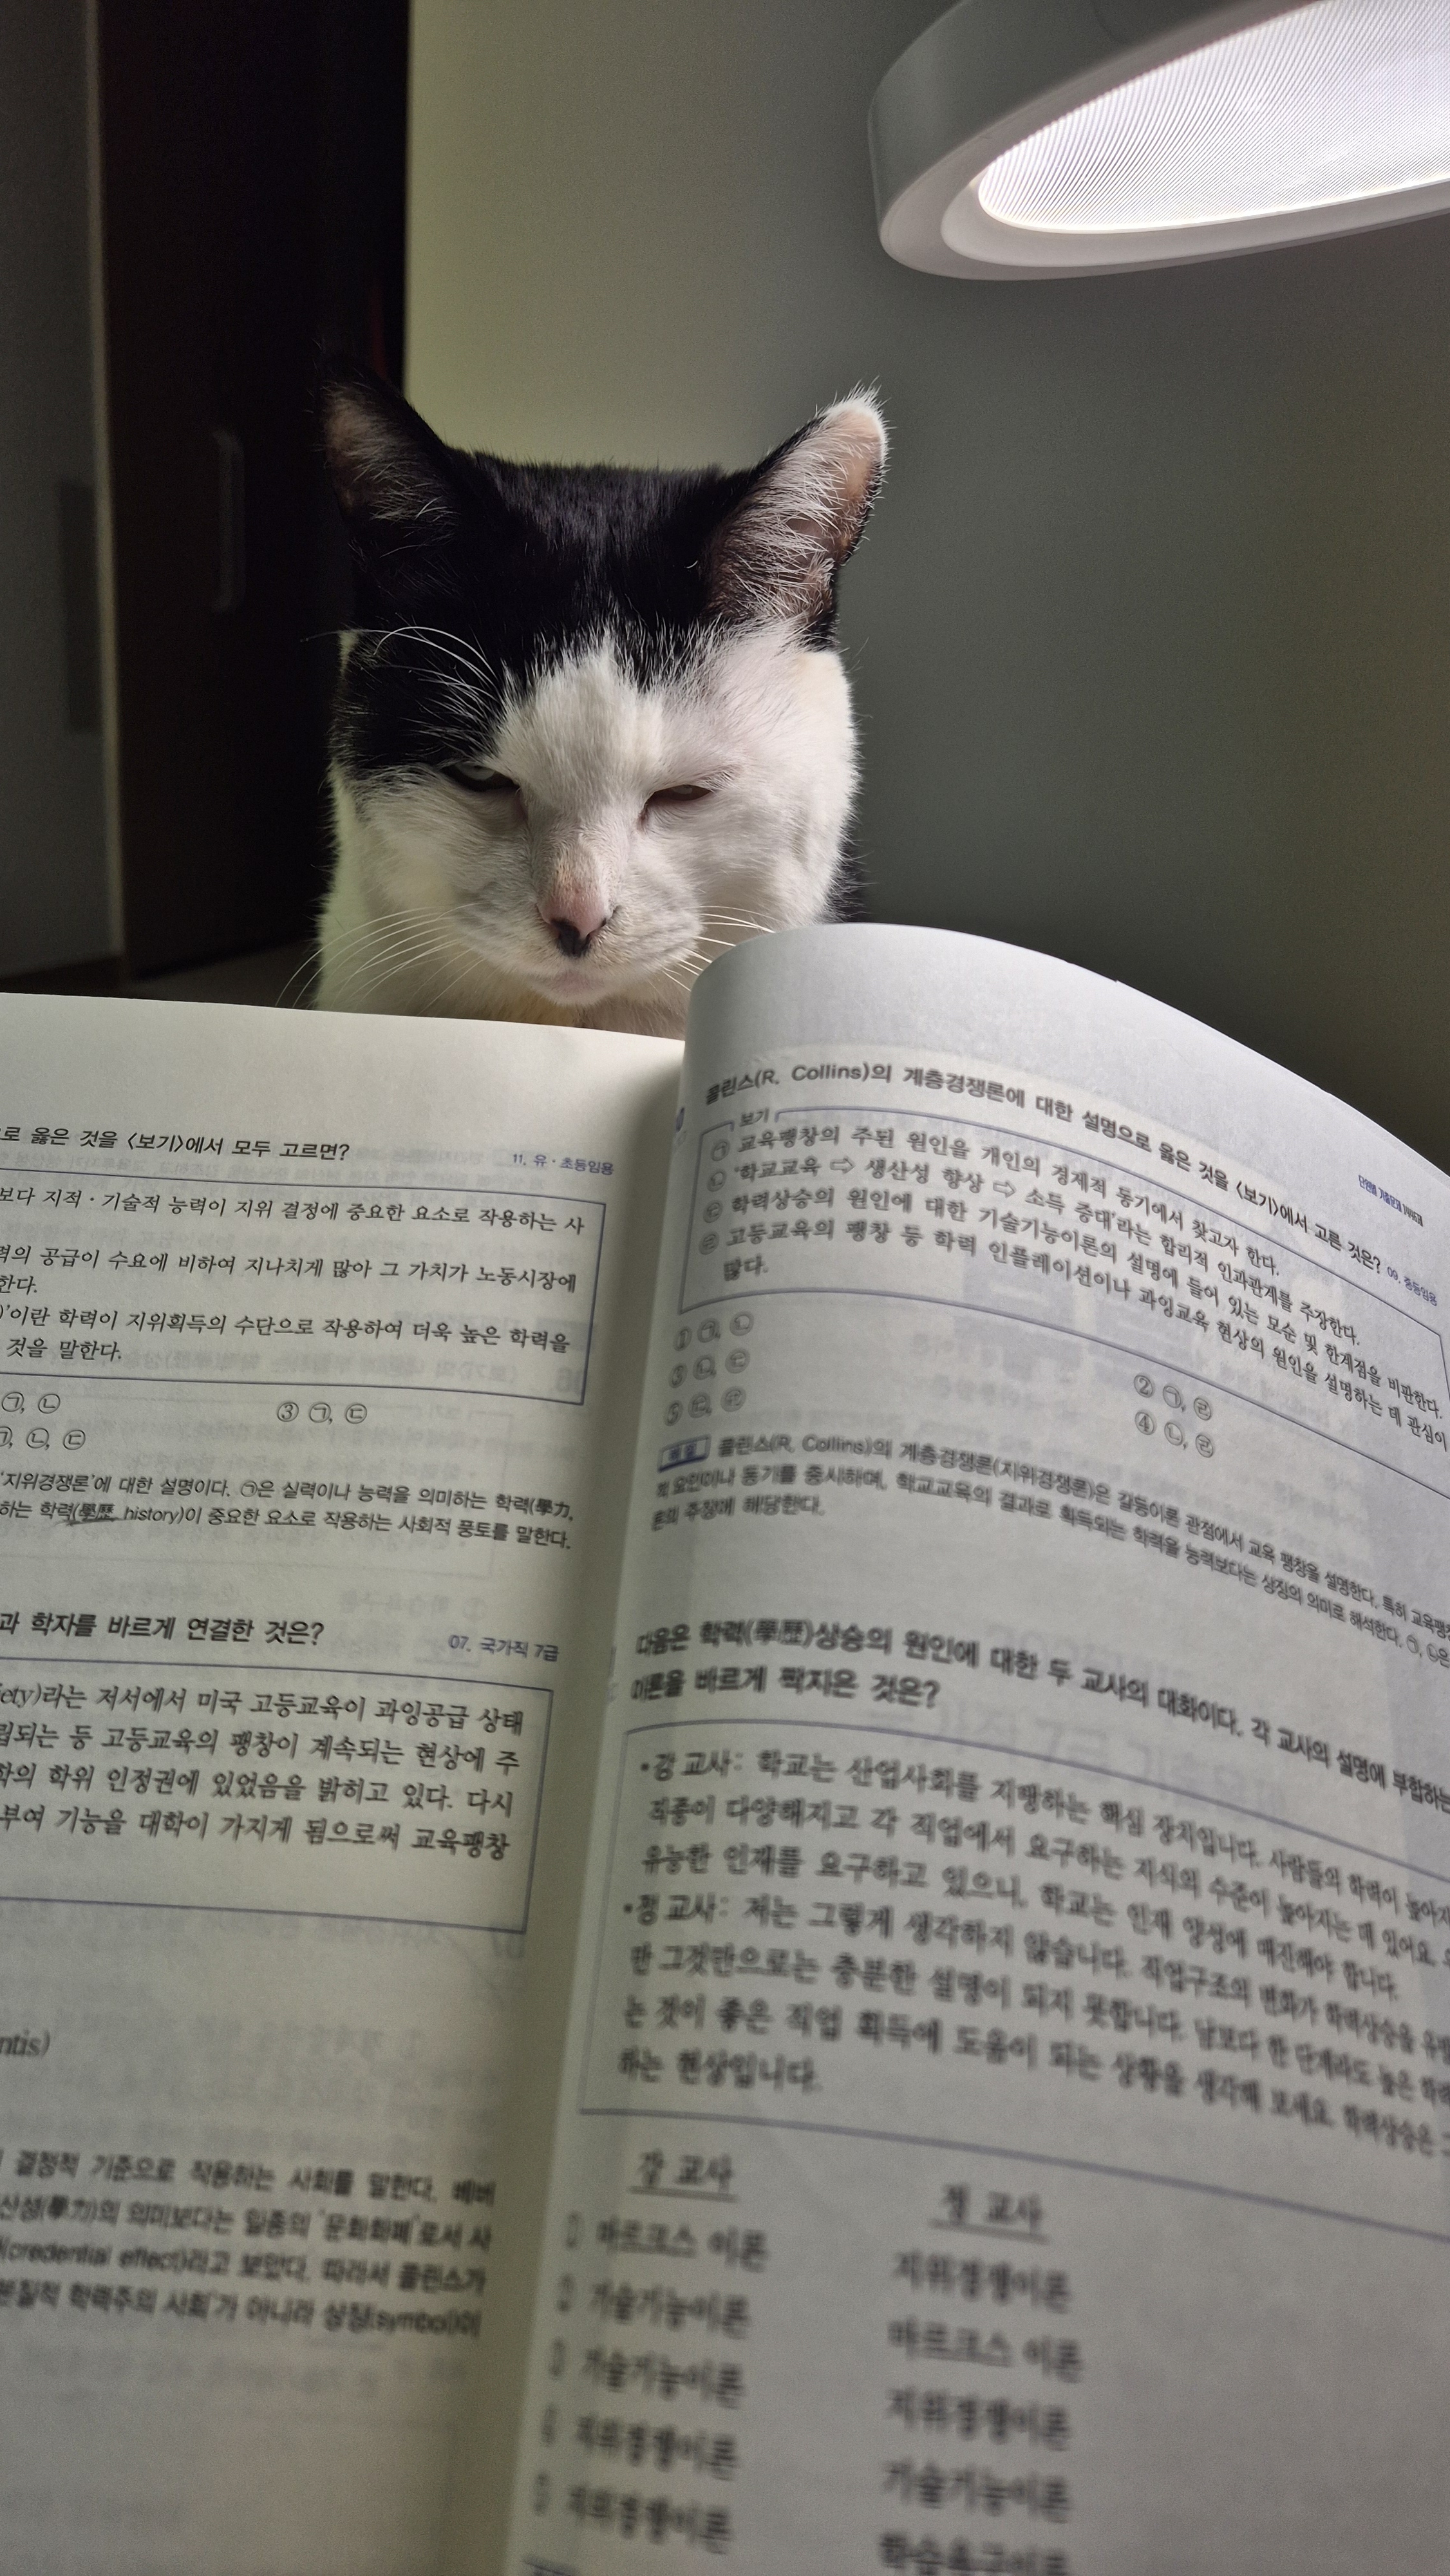 로 옳은 것을 〈보기〉에서 모두 고르면?
11. 유·초등임용
보다 지적·기술적 능력이 지위 결정에 중요한 요소로 작용하는 사
력의 공급이 수요에 비하여 지나치게 많아 그 가치가 노동시장에
한다.
'이란 학력이 지위획득의 수단으로 작용하여 더욱 높은 학력을
것을 말한다.
㉠, ㉡
③ ㉠, ㉢
㉠, ㉡, ㉢
'지위경쟁론'에 대한 설명이다. ㉠은 실력이나 능력을 의미하는 학력(學力,
하는 학력(學歷, history)이 중요한 요소로 작용하는 사회적 풍토를 말한다.
과 학자를 바르게 연결한 것은?
07. 국가직 7급
iety)라는 저서에서 미국 고등교육이 과잉공급 상태
립되는 등 고등교육의 팽창이 계속되는 현상에 주
학의 학위 인정권에 있었음을 밝히고 있다. 다시
부여 기능을 대학이 가지게 됨으로써 교육팽창
ntis)
결정적 기준으로 작용하는 사회를 말한다. 베버
신성(學力)의 의미보다는 일종의 '문화화폐'로서 사
(credential effect)라고 보았다. 따라서 콜린스가
본질적 학력주의 사회'가 아니라 상징(symbol)이
단원별 기출문제
콜린스(R. Collins)의 계층경쟁론에 대한 설명으로 옳은 것을 〈보기〉에서 고른 것은?
09. 중등임용
보기
㉠ 교육팽창의 주된 원인을 개인의 경제적 동기에서 찾고자 한다.
㉡ '학교교육 ⇨ 생산성 향상 ⇨ 소득 증대'라는 합리적 인과관계를 주장한다.
㉢ 학력상승의 원인에 대한 기술기능이론의 설명에 들어 있는 모순 및 한계점을 비판한다.
㉣ 고등교육의 팽창 등 학력 인플레이션이나 과잉교육 현상의 원인을 설명하는 데 관심이
많다.
① ㉠, ㉡
② ㉠, ㉣
③ ㉡, ㉢
④ ㉡, ㉣
⑤ ㉢, ㉣
해설 콜린스(R. Collins)의 계층경쟁론(지위경쟁론)은 갈등이론 관점에서 교육 팽창을 설명한다. 특히 교육팽창
적 요인이나 동기를 중시하며, 학교교육의 결과로 획득되는 학력을 능력보다는 상징의 의미로 해석한다. ㉠, ㉡은
론의 주장에 해당한다.
다음은 학력(學歷)상승의 원인에 대한 두 교사의 대화이다. 각 교사의 설명에 부합하는
이론을 바르게 짝지은 것은?
•강 교사: 학교는 산업사회를 지탱하는 핵심 장치입니다. 사람들의 학력이 높아지
직종이 다양해지고 각 직업에서 요구하는 지식의 수준이 높아지는 데 있어요.
유능한 인재를 요구하고 있으니, 학교는 인재 양성에 매진해야 합니다.
•정 교사: 저는 그렇게 생각하지 않습니다. 직업구조의 변화가 학력상승을 유발
만 그것만으로는 충분한 설명이 되지 못합니다. 남보다 한 단계라도 높은 학력
는 것이 좋은 직업 획득에 도움이 되는 상황을 생각해 보세요. 학력상승은
하는 현상입니다.
강 교사
정 교사
마르크스 이론
지위경쟁이론
기술기능이론
마르크스 이론
기술기능이론
지위경쟁이론
지위경쟁이론
기술기능이론
지위경쟁이론
학습욕구이론